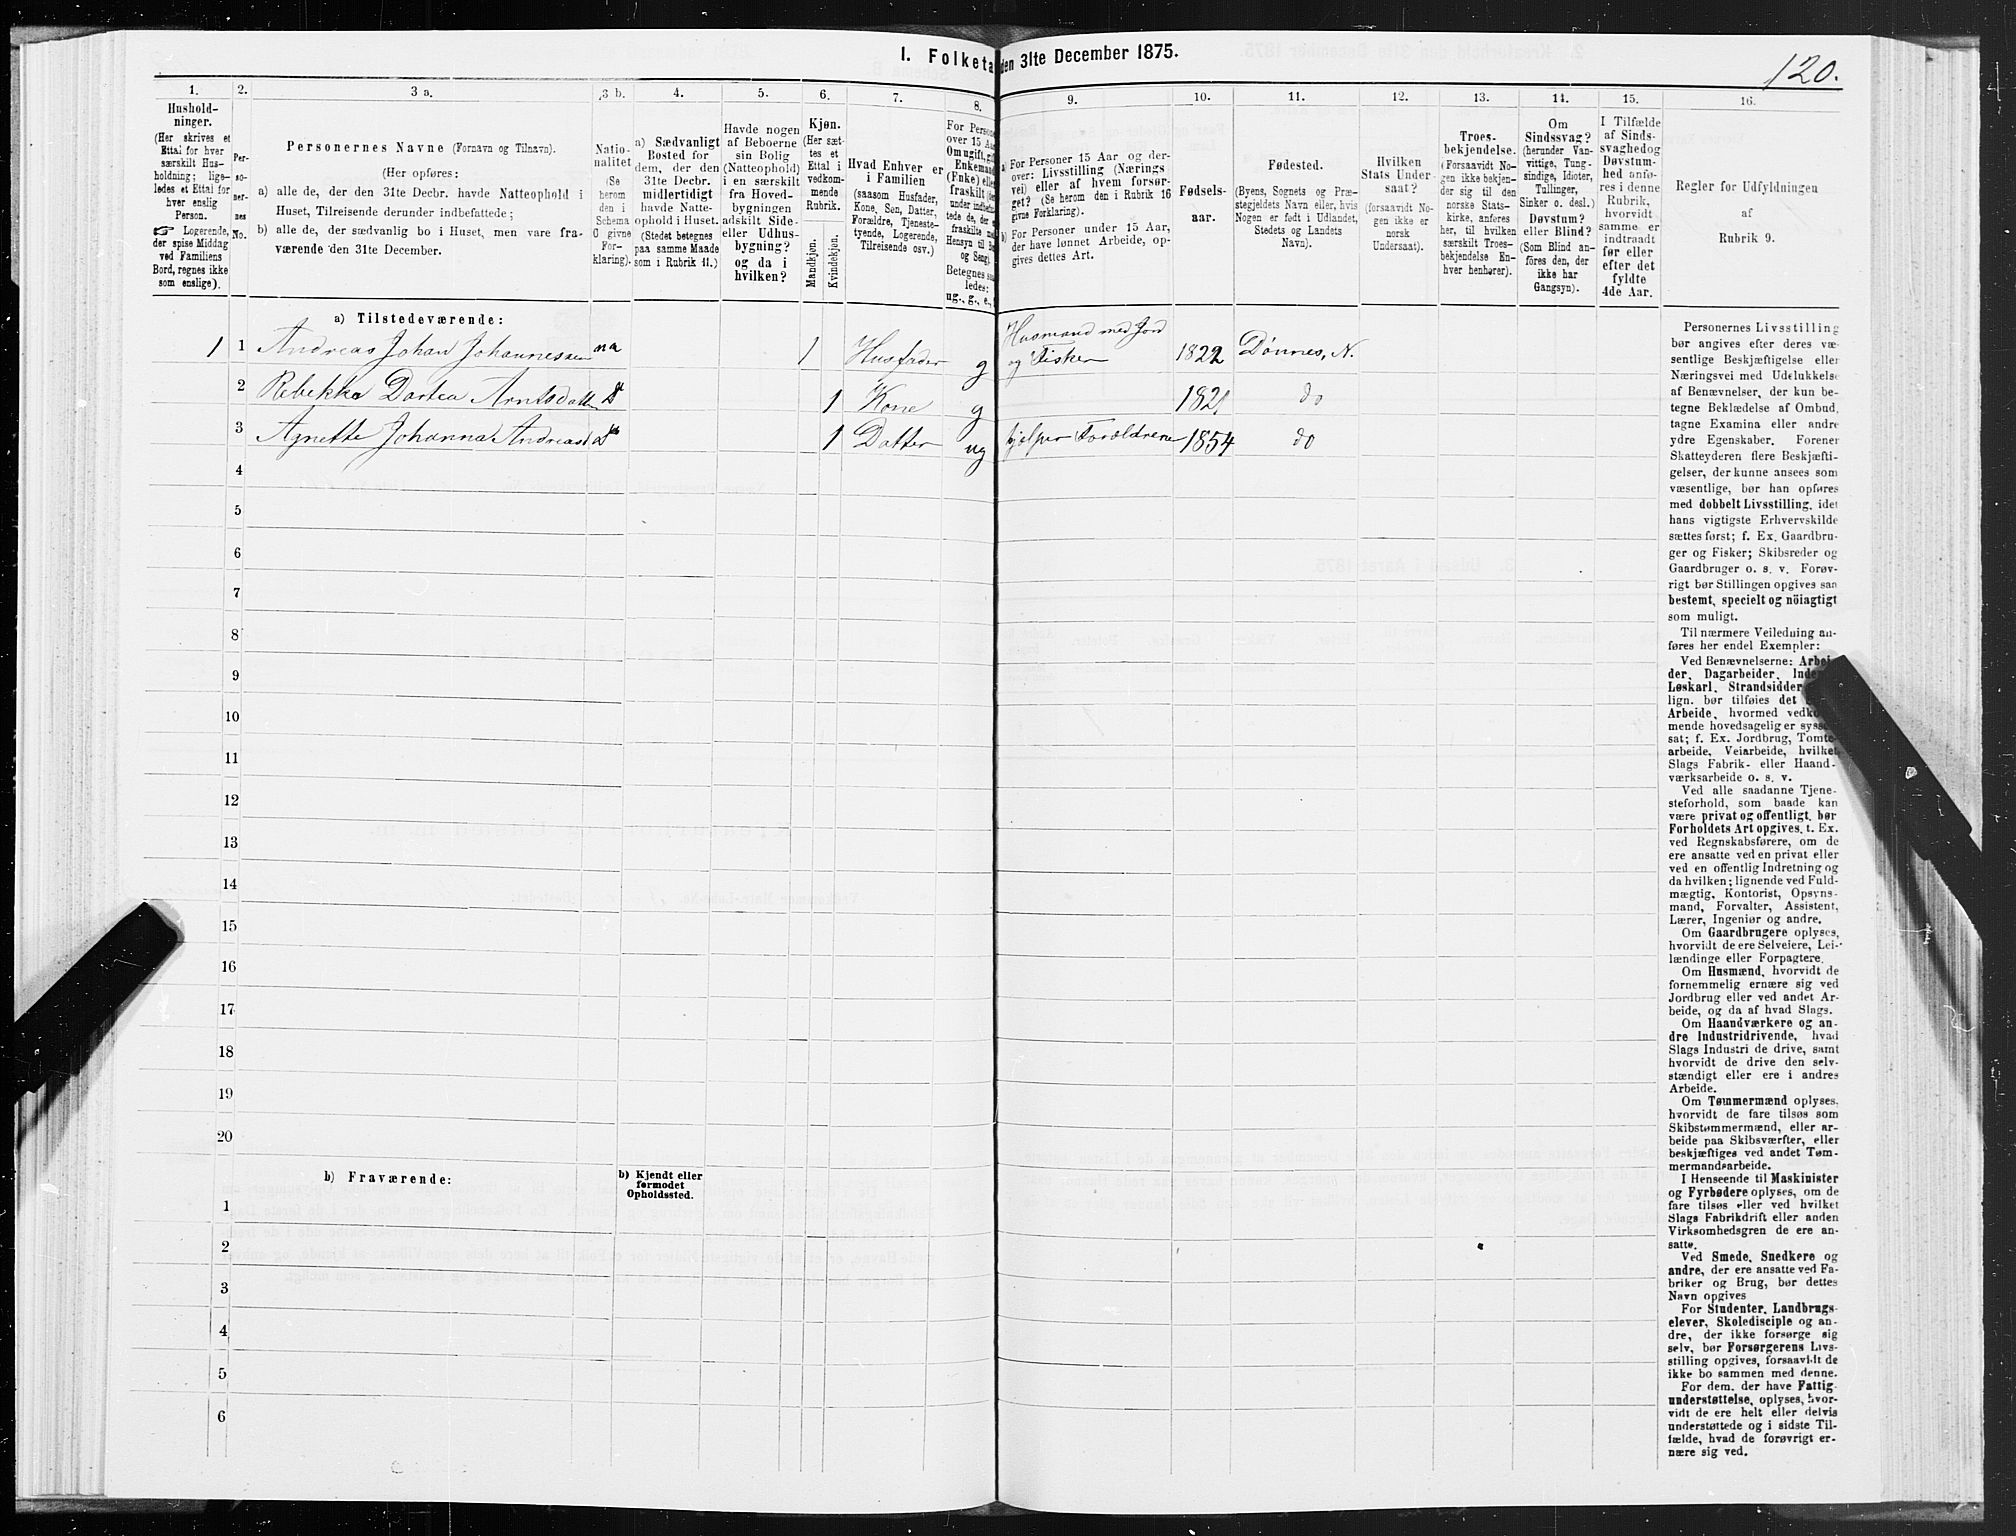 I. Folketa den 31te December 1875.
120.
1.
2.
3 a.
3 b.
4.
5.
6.
7.
8.
9.
10.
11.
12.
13.
14.
15.
16.
Hushold-
ninger.
(Her skrives et
Ettal for hver
særskilt Hus-
holdning; lige-
ledes et Ettal for
hver enslig
Person.
☞ Logerende,
der spise Middag
ved Familiens
Bord, regnes ikke
som enslige).
Per-
so-
ner-
nes
No.
Personernes Navne (Fornavn og Tilnavn).
(Her opføres:
a) alle de, der den 31te Decbr. havde Natteophold i
Huset, Tilreisende derunder indbefattede;
b) alle de, der sædvanlig bo i Huset, men vare fra-
værende den 31te December.
Natio-
nalitet
(Se
herom
den i
Schema
C givne
For-
klaring).
a) Sædvanligt
Bosted for
dem, der den
31te Decbr.
midlertidigt
havde Natte-
ophold i Huset.
(Stedet betegnes
paa samme Maade
som i Rubrik 11.)
Havde nogen
af Beboerne
sin Bolig
(Natteophold)
i en særskilt
fra Hoved-
bygningen
adskilt Side-
eller Udhus-
bygning?
og da i
hvilken?
Kjøn.
(Her sæt-
tes et
Ettal i
vedkom-
mende
Rubrik.
Mandkjøn.
Kvindekjøn.
Hvad Enhver er
i Familien
(saasom Husfader,
Kone, Søn, Datter,
Forældre, Tjeneste-
tyende, Logerende,
Tilreisende osv.)
For Persone
over 15 Aar
Om ugift, gif
Enkemand
(Enke) elle
fraskilt (de
under indbefat
tede de, der e
fraskilte med
Hensyn til Bo
og Seng).
Betegnes saa
ledes:
ug., g., e.,
a) For Personer 15 Aar og der-
over: Livsstilling (Nærings
vei) eller af hvem forsør-
get? (Se herom den i Rubrik 16
givne Forklaring).
b) For Personer under 15 Aar,
der have lønnet Arbeide, op-
gives dettes Art.
Fødsels-
aar.
Fødested.
(Byens, Sognets og Præ-
stegjeldets Navn eller, hvis
Nogen er født i Udlandet,
Stedets og Landets
Navn).
Hvilken
Stats Under-
saat?
(forsaavidt No-
gen ikke er
norsk
Undersaat).
Troes-
bekjendelse.
(Forsaavidt No-
gen ikke bekjen-
der sig til den
norske Stats-
kirke, anføres
her, til hvilken
særskilt Troes-
bekjendelse En-
hver henhører).
Om
Sindssvag?
(herunder Van-
vittige, Tung-
sindige, Idioter,
Tullinger,
Sinker o. desl.)
Døvstum?
eller Blind?
(Som Blind an-
føres den, der
ikke har
Gangsyn).
I Tilfælde
af Sinds-
svaghed og
Døvstum-
hed anfø-
res i denne
Rubrik,
hvorvidt
samme er
indtraadt
før eller
efter det
fyldte
4de Aar.
Regler for Udfyldningen
af
Rubrik 9.
a) Tilstedeværende:
1 1 Andreas Johan Johannessen na 1 Husfader g Husmand med Jord og Fisker 1822 Dønnes, N.
2 Rebekka Dortea Arntsdatter 1 Kone g 1821 do
3 Agnette Johanna Andreasd 1 Datter ug hjelper Forældrene 1854 do
4
5
6
7
8
9
10
11
12
13
14
15
16
17
18
19
20
b) Fraværende:
b) Kjendt eller
formodet
Opholdssted.
1
2
3
4
5
6
Personernes Livsstilling
bør angives efter deres væ-
sentlige Beskjæftigelse eller
Næringsvei med Udelukkelse
af Benævnelser, der kun be-
tegne Beklædelse af Ombud,
tagne Examina eller andre
ydre Egenskaber. Forener
Skatteyderen flere Beskjæfti-
gelser, der kunne ansees som
væsentlige, bør han opføres
med dobbelt Livsstilling, idet
hans vigtigste Erhvervskilde
sættes først; f. Ex. Gaardbru-
ger og Fisker; Skibsreder og
Gaardbruger o. s. v. Forøv-
rigt bør Stillingen opgives saa
bestemt, specielt og nöiagtigt
som muligt.
Til nærmere Veiledning an-
føres her endel Exempler:
Ved Benævnelserne: Arbei-
der, Dagarbeider, Inder
Løskarl, Strandsidder
lign. bør tilføies det
Arbeide, hvormed vedkom-
mende hovedsagelig er syssel-
sat; f. Ex. Jordbrug, Tomte-
arbeide, Veiarbeide, hvilket
Slags Fabrik- eller Haand-
værksarbeide o. s. v.
Ved alle saadanne Tjene-
steforhold, som baade kan
være privat og offentligt, bør
Forholdets Art opgives, t. Ex.
ved Regnskabsførere, om de
ere ansatte ved en privat eller
ved en offentlig Indretning og
da hvilken; lignende ved Fuld-
mægtig, Kontorist, Opsyns-
mand, Forvalter, Assistent,
Lærer, Ingeniør og andre.
Om Gaardbrugere oplyses,
hvorvidt de ere Selveiere, Lei-
lændinge eller Forpagtere.
Om Husmænd, hvorvidt de
fornemmelig ernære sig ved
Jordbrug eller ved andet Ar-
beide, og da af hvad Slags.
Om Haandværkere og an-
dre Industridrivende, hvad
Slags Industri de drive, samt
hvorvidt de drive den selv-
stændigt eller ere i andres
Arbeide.
Om Tømmermænd oplyses,
hvorvidt de fare tilsøs som
Skibstømmermænd, eller ar-
beide paa Skibsværfter, eller
beskjæftiges ved andet Tøm-
mermandsarbeide.
I Henseende til Maskinister
og Fyrbødere oplyses, om de
fare tilsøs eller ved hvilket
Slags Fabrikdrift eller anden
Virksomhedsgren de ere an-
satte.
Ved Smede, Snedkere og
andre, der ere ansatte ved Fa-
briker og Brug, bør dettes
Navn opgives
For Studenter, Landbrugs-
elever, Skoledisciple og an-
dre, der ikke forsørge sig
selv, bør Forsørgerens Livs-
stilling opgives, forsaavidt de
ikke bo sammen med denne.
For dem, der have Fattig-
understøttelse, oplyses, hvor-
vidt de ere helt eller delvis
understøttede og i sidste Til-
fælde, hvad de forøvrigt er-
nære sig ved.